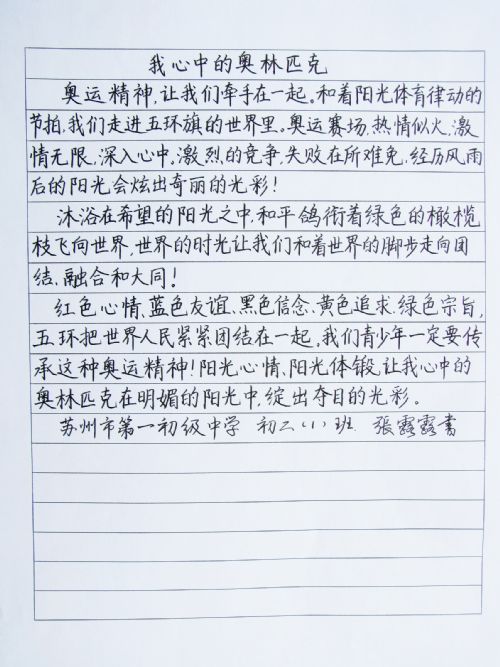 我心中的奥林匹克
奥运精神,让我们牵手在一起。和着阳光体育律动的
节拍,我们走进五环旗的世界里。奥运赛场,热情似火,激
情无限,深入心中,激烈的竞争,失败在所难免,经历风雨
后的阳光会炫出奇丽的光彩!
沐浴在希望的阳光之中,和平鸽衔着绿色的橄榄
枝飞向世界,世界的时光让我们和着世界的脚步走向团
结、融合和大同!
红色心情、蓝色友谊、黑色信念、黄色追求、绿色宗旨,
五环把世界人民紧紧团结在一起,我们青少年一定要传
承这种奥运精神!阳光心情、阳光体锻,让我心中的
奥林匹克在明媚的阳光中,绽出夺目的光彩。
苏州市第一初级中学 初二(1)班 張露露書